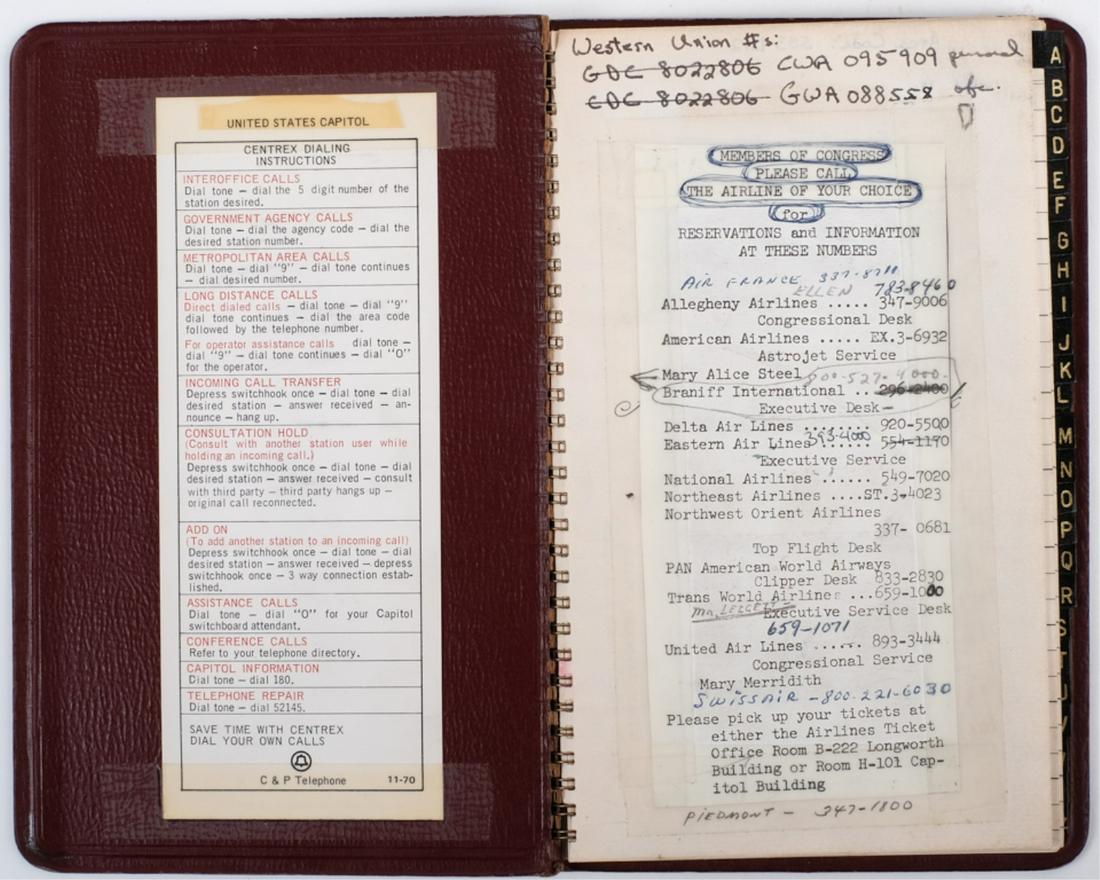 UNITED STATES CAPITOL
CENTREX DIALING
INSTRUCTIONS
INTEROFFICE CALLS
Dial tone — dial the 5 digit number of the
station desired.
GOVERNMENT AGENCY CALLS
Dial tone — dial the agency code — dial the
desired station number.
METROPOLITAN AREA CALLS
Dial tone — dial "9" — dial tone continues
— dial desired number.
LONG DISTANCE CALLS
Direct dialed calls — dial tone — dial "9"
dial tone continues — dial the area code
followed by the telephone number.
For operator assistance calls dial tone —
dial "9" — dial tone continues — dial "0"
for the operator.
INCOMING CALL TRANSFER
Depress switchhook once — dial tone — dial
desired station — answer received — an-
nounce — hang up.
CONSULTATION HOLD
(Consult with another station user while
holding an incoming call.)
Depress switchhook once — dial tone — dial
desired station — answer received — consult
with third party — third party hangs up —
original call reconnected.
ADD ON
(To add another station to an incoming call)
Depress switchhook once — dial tone — dial
desired station — answer received — depress
switchhook once — 3 way connection estab-
lished.
ASSISTANCE CALLS
Dial tone — dial "0" for your Capitol
switchboard attendant.
CONFERENCE CALLS
Refer to your telephone directory.
CAPITOL INFORMATION
Dial tone — dial 180.
TELEPHONE REPAIR
Dial tone — dial 52145.
SAVE TIME WITH CENTREX
DIAL YOUR OWN CALLS
C & P Telephone 11-70
Western Union #s:
GDC 8022806 CWA 095909 personal
CDC 8022806 GWA 088558 ofc.
MEMBERS OF CONGRESS
PLEASE CALL
THE AIRLINE OF YOUR CHOICE
for
RESERVATIONS and INFORMATION
AT THESE NUMBERS
AIR FRANCE 337-8711
ELLEN 783-8460
Allegheny Airlines ..... 347-9006
Congressional Desk
American Airlines ..... EX.3-6932
Astrojet Service
Mary Alice Steel 800-527-4000
Braniff International .. 296-2400
Executive Desk
Delta Air Lines ........ 920-5500
393-4000
Eastern Air Lines ...... 554-1170
Executive Service
National Airlines ...... 549-7020
Northeast Airlines ....ST.3-4023
Northwest Orient Airlines
337- 0681
Top Flight Desk
PAN American World Airways
Clipper Desk 833-2830
Trans World Airlines ...659-1000
Mr. LEGGETT Executive Service Desk
659-1071
United Air Lines ...... 893-3444
Congressional Service
Mary Merridith
SWISSAIR - 800-221-6030
Please pick up your tickets at
either the Airlines Ticket
Office Room B-222 Longworth
Building or Room H-101 Cap-
itol Building
PIEDMONT - 347-1800
A
B
C
D
E
F
G
H
I
J
K
L
M
N
O
P
Q
R
S
T
U
V